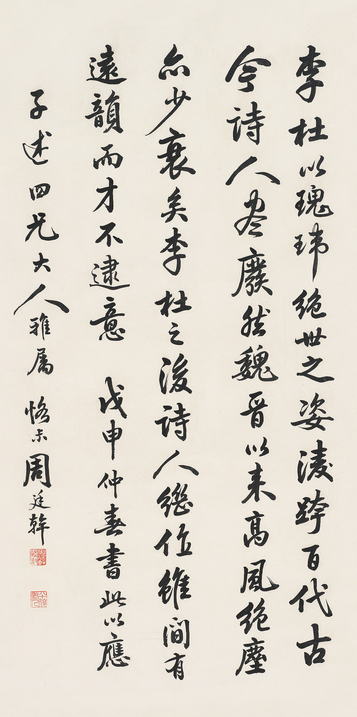 李杜以瑰玮絕世之姿淩跨百代古
今詩人盡廢然魏晉以来高風絕塵
亦少衰矣李杜之後詩人繼作雖間有
遠韻而才不逮意 戊申仲春書此以應
子述四兄大人雅属 恪未周廷幹